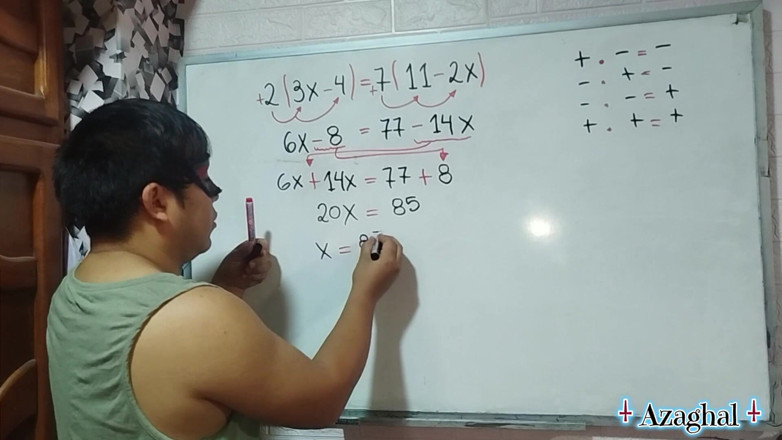 +2(3x-4)=+7(11-2x)
6x-8 = 77-14x
6x+14x=77+8
20x = 85
x = 8
+ · - = -
- · + = -
- · - = +
+ · + = +
Azaghal